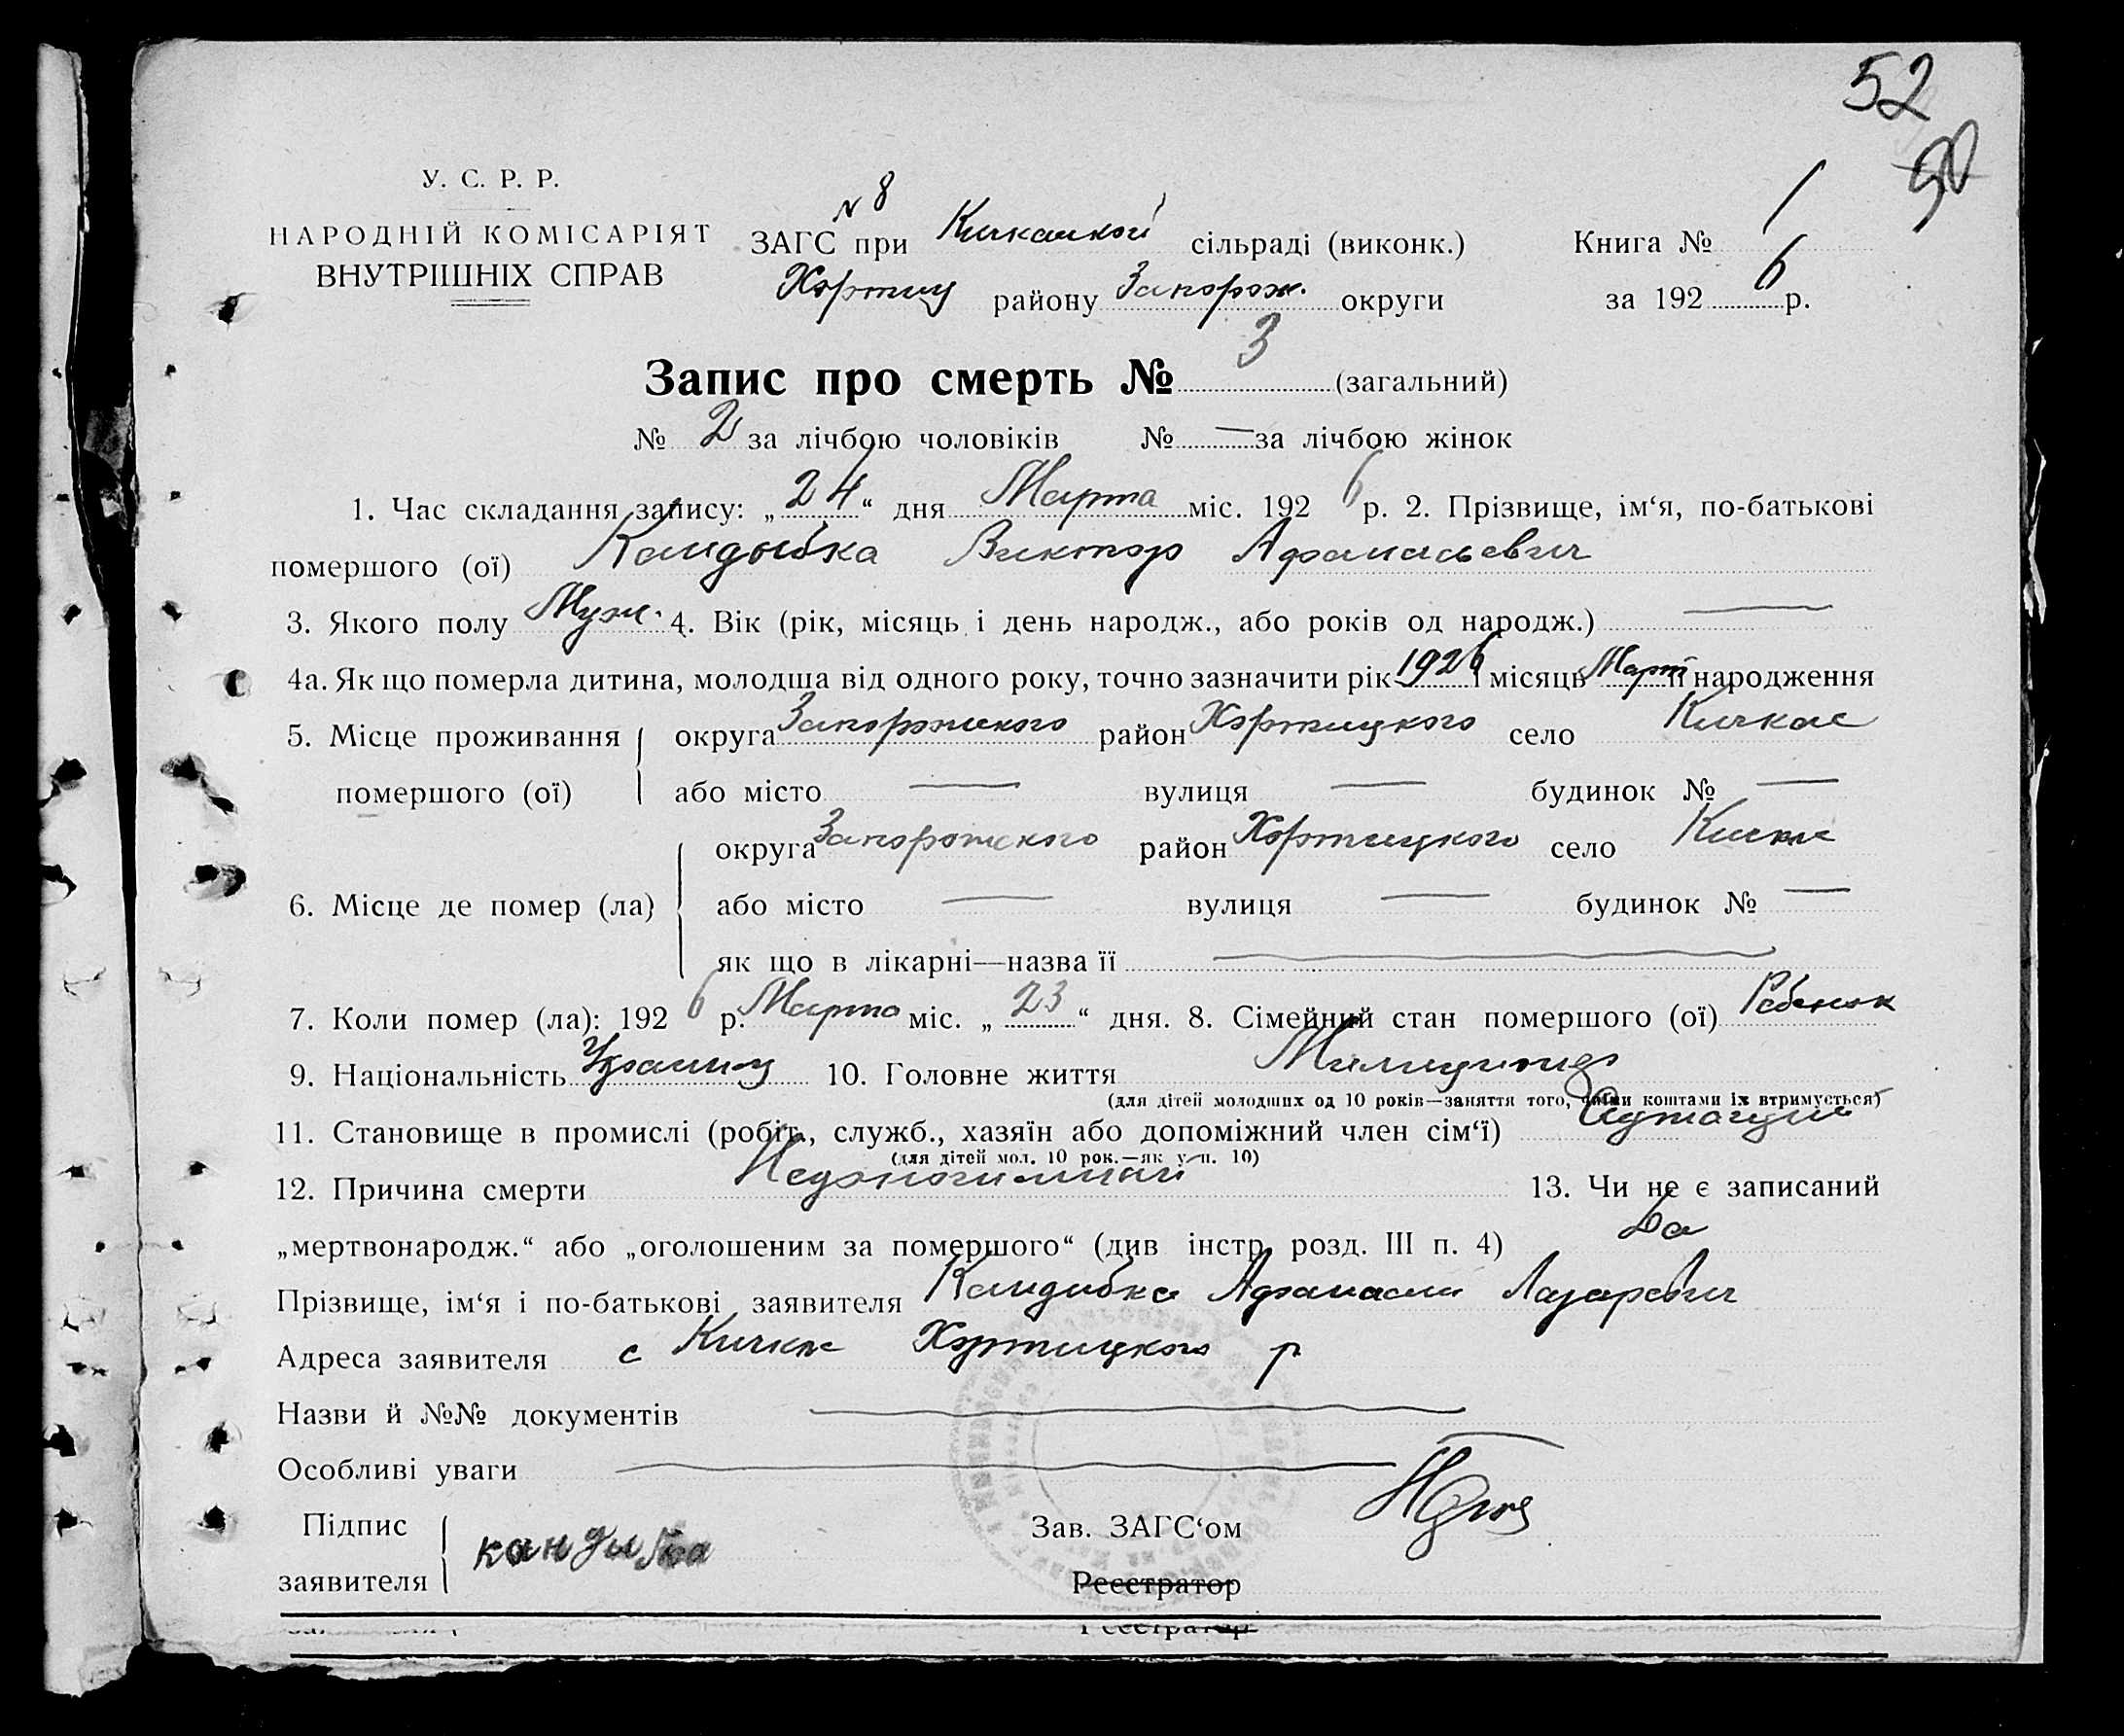 52
90
У. С. Р. Р.
НАРОДНІЙ КОМІСАРІЯТ
ВНУТРІШНІХ СПРАВ
№ 8
ЗАГС при Кичкаской сільраді (виконк.)
Хортиц району Запорож. округи
Книга № 1
за 1926 р.
Запис про смерть № 3 (загальний)
№ 2 за лічбою чоловіків № — за лічбою жінок
1. Час складання запису: „24“ дня Марта міс. 1926 р. 2. Прізвище, ім‘я, по-батькові
помершого (ої) Кандыбка Виктор Афанасьевич
3. Якого полу Муж. 4. Вік (рік, місяць і день народж., або років од народж.) —
4а. Як що померла дитина, молодша від одного року, точно зазначити рік 1926 і місяць Март її народження
5. Місце проживання округа Запорожского район Хортицкого село Кичкас
помершого (ої) або місто — вулиця — будинок № —
округа Запорожского район Хортицкого село Кичкас
6. Місце де помер (ла) або місто — вулиця — будинок № —
як що в лікарні—назва її —
7. Коли помер (ла): 1926 р. Марта міс. „23“ дня. 8. Сімейний стан помершого (ої) Ребенок
9. Національність Украинц 10. Головне життя Милиционер
(для дітей молодших од 10 років—заняття того, чиїми коштами їх втримується)
11. Становище в промислі (робіт., служб., хазяїн або допоміжний член сім‘ї)
(для дітей мол. 10 рок.—як у п. 10)
12. Причина смерти 13. Чи не є записаний
„мертвонародж.“ або „оголошеним за помершого“ (див інстр. розд. III п. 4) Да
Прізвище, ім‘я і по-батькові заявителя Кандибка Афанасий Лазаревич
Адреса заявителя с Кичкас Хортицкого р
Назви й №№ документів —
Особливі уваги —
Підпис
заявителя кандибка
Зав. ЗАГС‘ом
Реєстратор
Реєстратор